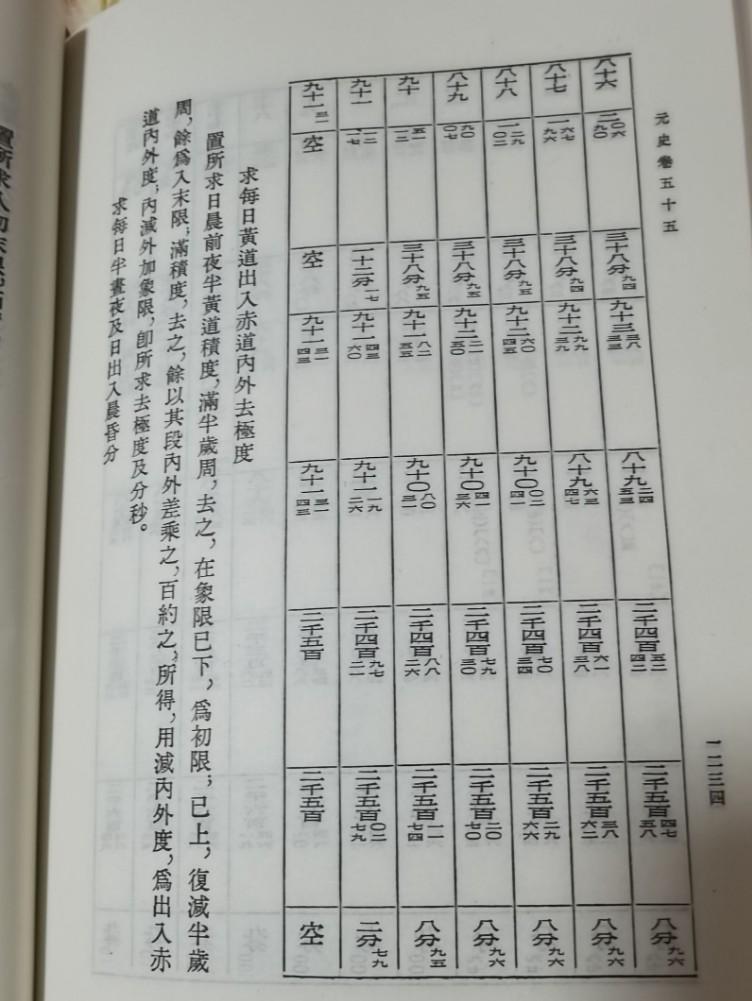 元史卷五十五
一二三四
八十六 二〇六九〇 三十八分九四 九十三三八三三 八十九二四五三 二千四百五二四二 二千五百四七五八 八分九六
八十七 一六七九六 三十八分九四 九十二九九三九 八十九六三四七 二千四百六一三八 二千五百三八六二 八分九六
八十八 一二九〇二 三十八分九五 九十二六〇四五 九十〇〇二四一 二千四百七〇三四 二千五百二九六六 八分九六
八十九 九〇〇七 三十八分九五 九十二二一五〇 九十〇四一三六 二千四百七九三〇 二千五百二〇七〇 八分九六
九十 五一一三 三十八分九五 九十一八二五五 九十〇八〇三一 二千四百八八二六 二千五百一一七四 八分九五
九十一 一二一七 一十二分一七 九十一四三六〇 九十一一九二六 二千四百九七二一 二千五百〇二七九 二分七九
九十一三一 空 空 九十一三一四三 九十一三一四三 二千五百 二千五百 空
求每日黃道出入赤道內外去極度
置所求日晨前夜半黃道積度，滿半歲周，去之，在象限已下，爲初限；已上，復減半歲
周，餘爲入末限；滿積度，去之，餘以其段內外差乘之，百約之，所得，用減內外度，爲出入赤
道內外度；內減外加象限，卽所求去極度及分秒。
求每日半晝夜及日出入晨昏分